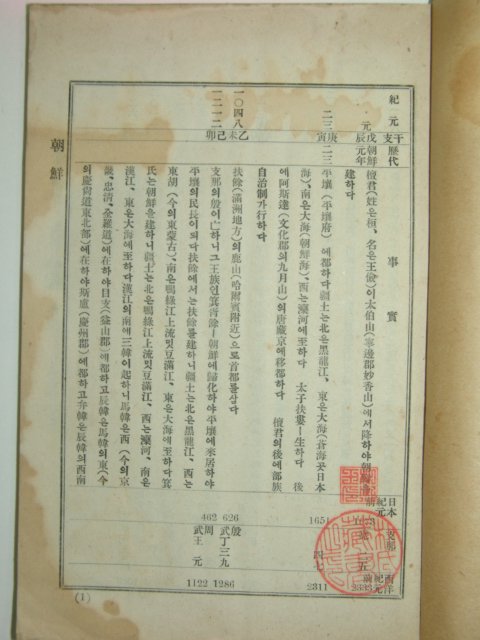 朝鮮
紀元
干支
歷代
事實
日本紀元前
支那
西洋紀元前
元
戊辰
朝鮮元年
檀君(姓은桓、名은王儉)이太伯山(寧邊郡妙香山)에서降하야朝鮮을
建하다
二三
庚寅
二三
平壤(平壤府)에都하다疆土는北은黑龍江、東은大海(蒼海곳日本
海)、南은大海(朝鮮海)、西는灤河에至하다 太子扶婁ㅣ生하다 後
에阿斯達(文化郡의九月山)의唐藏京에移都하다 檀君의後에部族
自治制가行하다
一〇四八
己卯
扶餘(滿洲地方)의鹿山(哈爾賓附近)으로首都를삼다
一二一二
乙未
支那의殷이亡하니그王族인箕胥餘ㅣ朝鮮에歸化하야平壤에來居하야
平壤의民長이되다扶餘에서는扶餘를建하니疆土는北은黑龍江、西는
東胡(今의東蒙古)、南은鴨綠江上流及豆滿江、東은大海에至하다箕
氏는朝鮮을建하니疆土는北은鴨綠江上流及豆滿江、西는灤河、南은
漢江、東은大海에至하다漢江의南에三韓이起하니馬韓은西(今의京
畿、忠淸、全羅道)에在하야目支(益山郡)에都하고辰韓은馬韓의東(今
의慶尙道東北部)에在하야斯盧(慶州郡)에都하고弁韓은辰韓의西南
1651
626
462
四七
殷武丁三九
周武王元
2333
2311
1286
1122
(1)